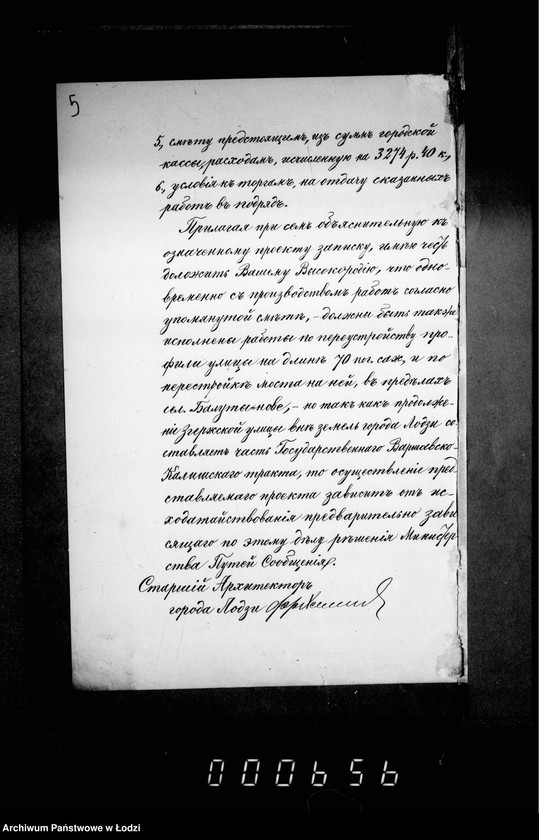 5
5, смѣту предстоящимъ, изъ суммъ городской
кассы, расходамъ, исчисленную на 3274 р. 40 к.,
6, условія къ торгамъ, на отдачу сказанныхъ
работъ въ подрядъ.
Прилагая при семъ объяснительную къ
означенному проекту записку, имѣю честь
доложить Вашему Высокородію, что одно-
временно съ производствомъ работъ согласно
упомянутой смѣтѣ, – должны быть также
исполнены работы по переустройству про-
фили улицы на длинѣ 70 пог. саж, и по
перестройкѣ моста на ней, въ предѣлахъ
сел. Балуты-нове, – но такъ какъ продолже-
ніе Згержской улицы внѣ земель города Лодзи со
ставляетъ часть Государственнаго Варшавско-
Калишскаго тракта, то осуществленіе пред
ставляемаго проекта зависитъ отъ ис-
ходатайствованія предварительно зави
сящаго по этому дѣлу рѣшенія Министер
ства Путей Сообщенія.
Старшій Архитекторъ
города Лодзи
000656
Archiwum Państwowe w Łodzi